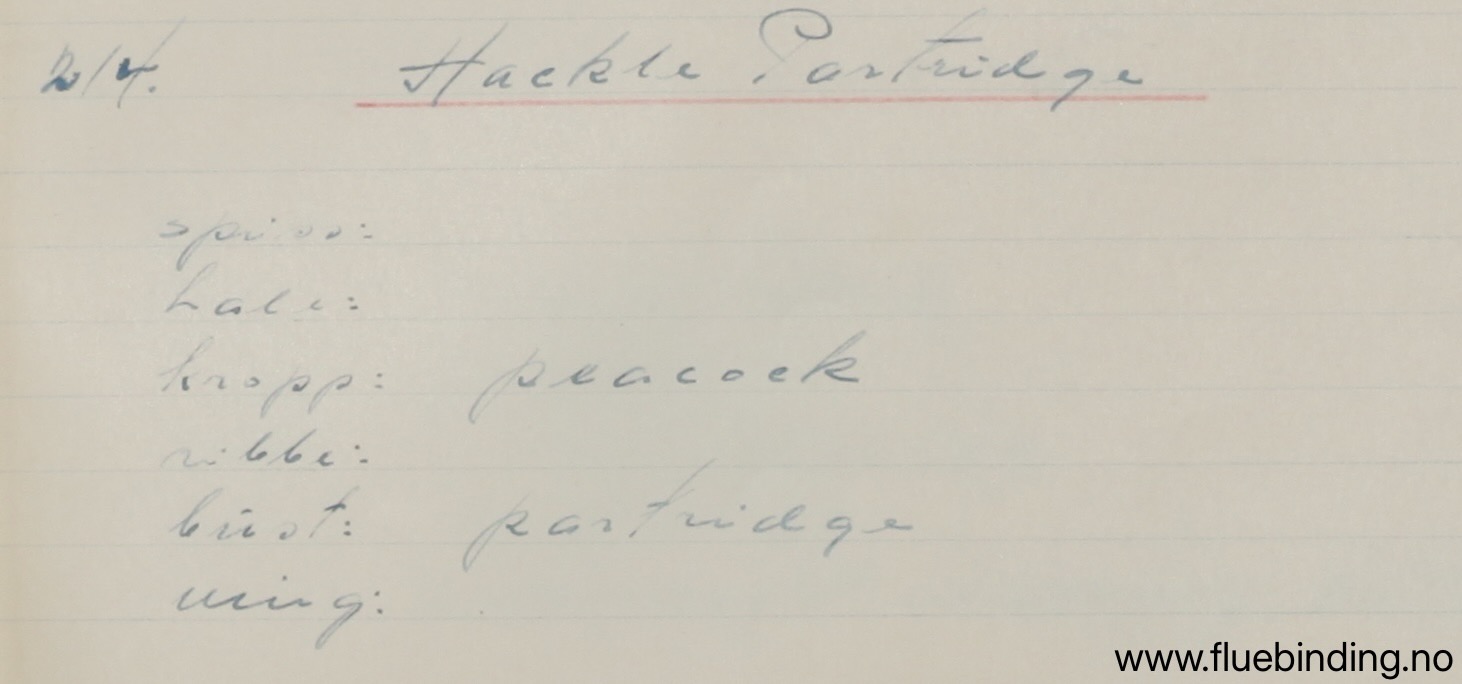 214. Hackle Partridge
spiss:
hale:
kropp: peacock
ribbe:
büst: partridge
ving:
www.fluebinding.no